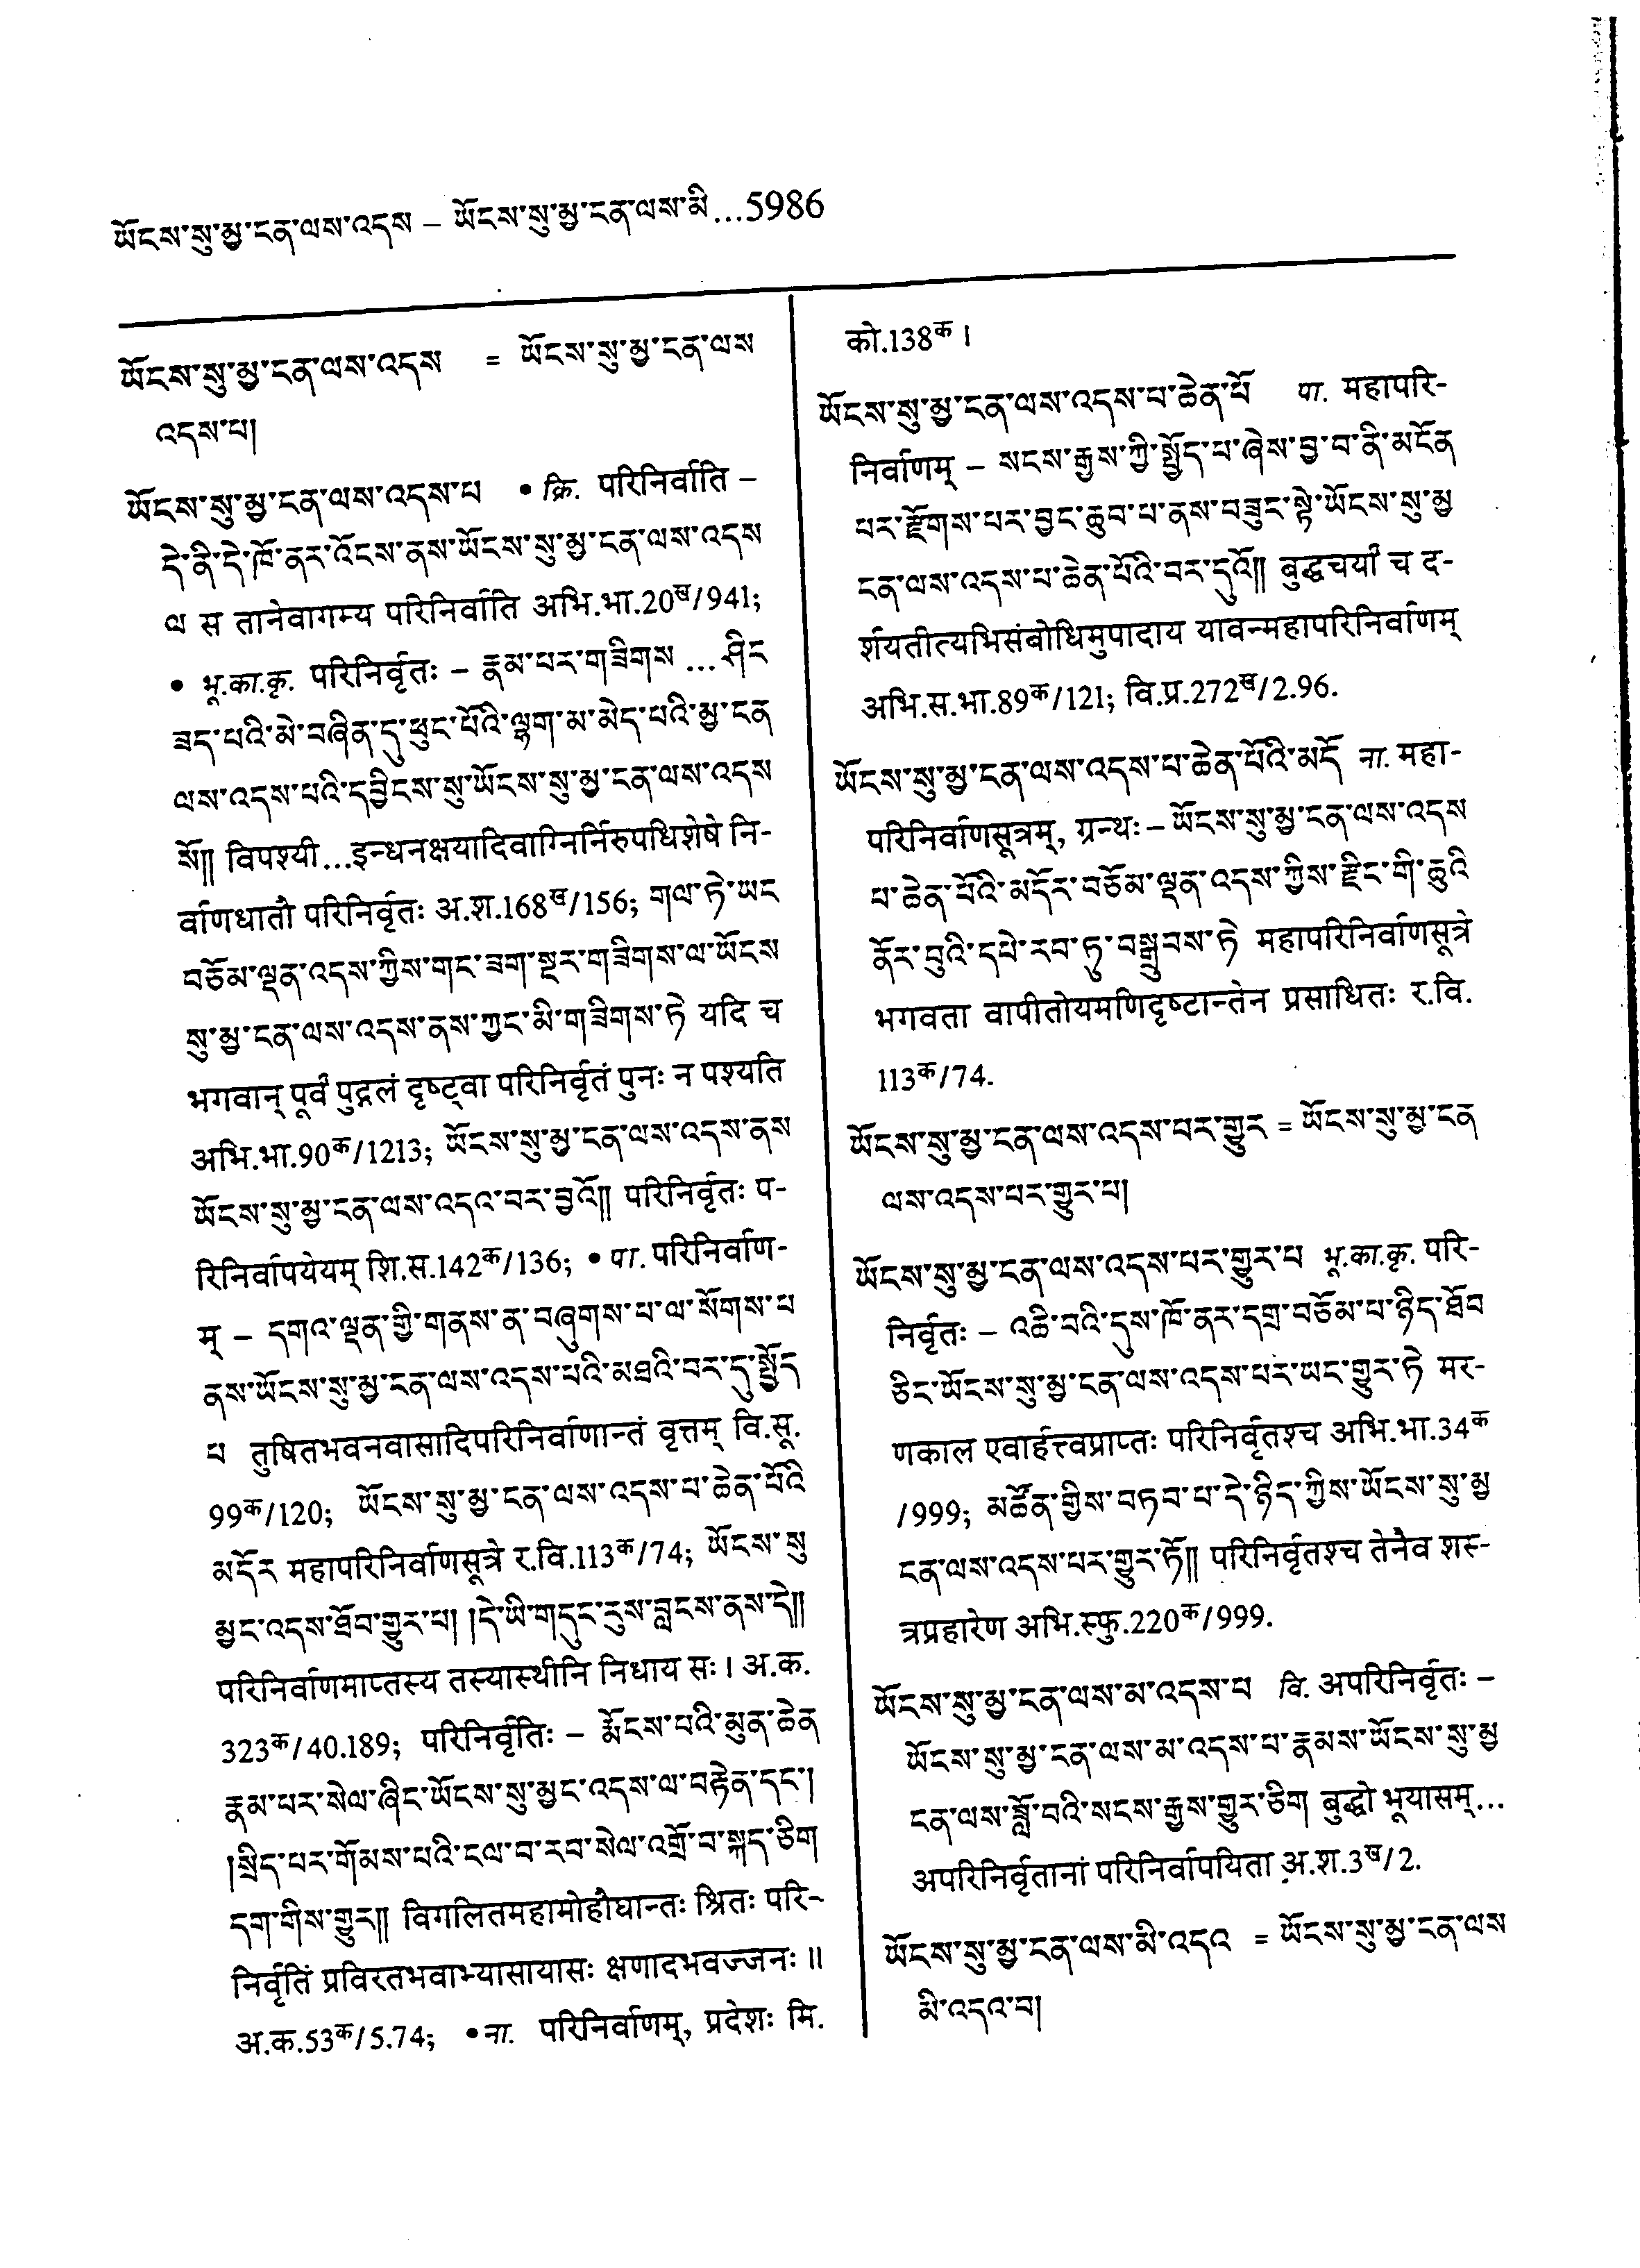 ཡོངས་སུ་མྱ་ངན་ལས་འདས – ཡོངས་སུ་མྱ་ངན་ལས་མི...5986
ཡོངས་སུ་མྱ་ངན་ལས་འདས = ཡོངས་སུ་མྱ་ངན་ལས
འདས་པ།
ཡོངས་སུ་མྱ་ངན་ལས་འདས་པ • क्रि. परिनिर्वाति –
དེ་ནི་དེ་ཁོ་ནར་འོངས་ནས་ཡོངས་སུ་མྱ་ངན་ལས་འདས
ལ स तानेवागम्य परिनिर्वाति अभि.भा.20ख/941;
• भू.का.कृ. परिनिर्वृतः – རྣམ་པར་གཟིགས ... ཤིང
ཟད་པའི་མེ་བཞིན་དུ་ཕུང་པོའི་ལྷག་མ་མེད་པའི་མྱ་ངན
ལས་འདས་པའི་དབྱིངས་སུ་ཡོངས་སུ་མྱ་ངན་ལས་འདས
སོ།། विपश्यी...इन्धनक्षयादिवाग्निर्निरुपधिशेषे नि-
र्वाणधातौ परिनिर्वृतः अ.श.168ख/156; གལ་ཏེ་ཡང
བཅོམ་ལྡན་འདས་ཀྱིས་གང་ཟག་སྔར་གཟིགས་ལ་ཡོངས
སུ་མྱ་ངན་ལས་འདས་ནས་ཀྱང་མི་གཟིགས་ཏེ यदि च
भगवान् पूर्वं पुद्गलं दृष्ट्वा परिनिर्वृतं पुनः न पश्यति
अभि.भा.90क/1213; ཡོངས་སུ་མྱ་ངན་ལས་འདས་ནས
ཡོངས་སུ་མྱ་ངན་ལས་འདའ་བར་བྱའོ།། परिनिर्वृतः प-
रिनिर्वापयेयम् शि.स.142क/136; • पा. परिनिर्वाण-
म् – དགའ་ལྡན་གྱི་གནས་ན་བཞུགས་པ་ལ་སོགས་པ
ནས་ཡོངས་སུ་མྱ་ངན་ལས་འདས་པའི་མཐའི་བར་དུ་སྤྱོད
པ तुषितभवनवासादिपरिनिर्वाणान्तं वृत्तम् वि.सू.
99क/120; ཡོངས་སུ་མྱ་ངན་ལས་འདས་པ་ཆེན་པོའི
མདོར महापरिनिर्वाणसूत्रे र.वि.113क/74; ཡོངས་སུ
མྱང་འདས་ཐོབ་གྱུར་པ། །དེ་ཡི་གདུང་རུས་བླངས་ནས་དེ།།
परिनिर्वाणमाप्तस्य तस्यास्थीनि निधाय सः। अ.क.
323क/40.189; परिनिर्वृतिः – རྨོངས་པའི་མུན་ཆེན
རྣམ་པར་སེལ་ཞིང་ཡོངས་སུ་མྱང་འདས་ལ་བརྟེན་དང་།
།སྲིད་པར་གོམས་པའི་ངལ་བ་རབ་སེལ་འགྲོ་བ་སྐད་ཅིག
དག་གིས་གྱུར།། विगलितमहामोहौघान्तः श्रितः परि-
निर्वृतिं प्रविरतभवाभ्यासायासः क्षणादभवज्जनः॥
अ.क.53क/5.74; • ना. परिनिर्वाणम्, प्रदेशः मि.
को.138क।
ཡོངས་སུ་མྱ་ངན་ལས་འདས་པ་ཆེན་པོ पा. महापरि-
निर्वाणम् – སངས་རྒྱས་ཀྱི་སྤྱོད་པ་ཞེས་བྱ་བ་ནི་མངོན
པར་རྫོགས་པར་བྱང་ཆུབ་པ་ནས་བཟུང་སྟེ་ཡོངས་སུ་མྱ
ངན་ལས་འདས་པ་ཆེན་པོའི་བར་དུའོ།། बुद्धचर्यां च द-
र्शयतीत्यभिसंबोधिमुपादाय यावन्महापरिनिर्वाणम्
अभि.स.भा.89क/121; वि.प्र.272ख/2.96.
ཡོངས་སུ་མྱ་ངན་ལས་འདས་པ་ཆེན་པོའི་མདོ ना. महा-
परिनिर्वाणसूत्रम्, ग्रन्थः – ཡོངས་སུ་མྱ་ངན་ལས་འདས
པ་ཆེན་པོའི་མདོར་བཅོམ་ལྡན་འདས་ཀྱིས་རྫིང་གི་ཆུའི
ནོར་བུའི་དཔེ་རབ་ཏུ་བསྒྲུབས་ཏེ महापरिनिर्वाणसूत्रे
भगवता वापीतोयमणिदृष्टान्तेन प्रसाधितः र.वि.
113क/74.
ཡོངས་སུ་མྱ་ངན་ལས་འདས་པར་གྱུར = ཡོངས་སུ་མྱ་ངན
ལས་འདས་པར་གྱུར་པ།
ཡོངས་སུ་མྱ་ངན་ལས་འདས་པར་གྱུར་པ भू.का.कृ. परि-
निर्वृतः – འཆི་བའི་དུས་ཁོ་ནར་དགྲ་བཅོམ་པ་ཉིད་ཐོབ
ཅིང་ཡོངས་སུ་མྱ་ངན་ལས་འདས་པར་ཡང་གྱུར་ཏེ मर-
णकाल एवार्हत्त्वप्राप्तः परिनिर्वृतश्च अभि.भा.34क
/999; མཚོན་གྱིས་བཏབ་པ་དེ་ཉིད་ཀྱིས་ཡོངས་སུ་མྱ
ངན་ལས་འདས་པར་གྱུར་ཏོ།། परिनिर्वृतश्च तेनैव शस्-
त्रप्रहारेण अभि.स्फु.220क/999.
ཡོངས་སུ་མྱ་ངན་ལས་མ་འདས་པ वि. अपरिनिर्वृतः –
ཡོངས་སུ་མྱ་ངན་ལས་མ་འདས་པ་རྣམས་ཡོངས་སུ་མྱ
ངན་ལས་ཟློ་བའི་སངས་རྒྱས་གྱུར་ཅིག बुद्धो भूयासम्...
अपरिनिर्वृतानां परिनिर्वापयिता अ.श.3ख/2.
ཡོངས་སུ་མྱ་ངན་ལས་མི་འདའ = ཡོངས་སུ་མྱ་ངན་ལས
མི་འདའ་བ།